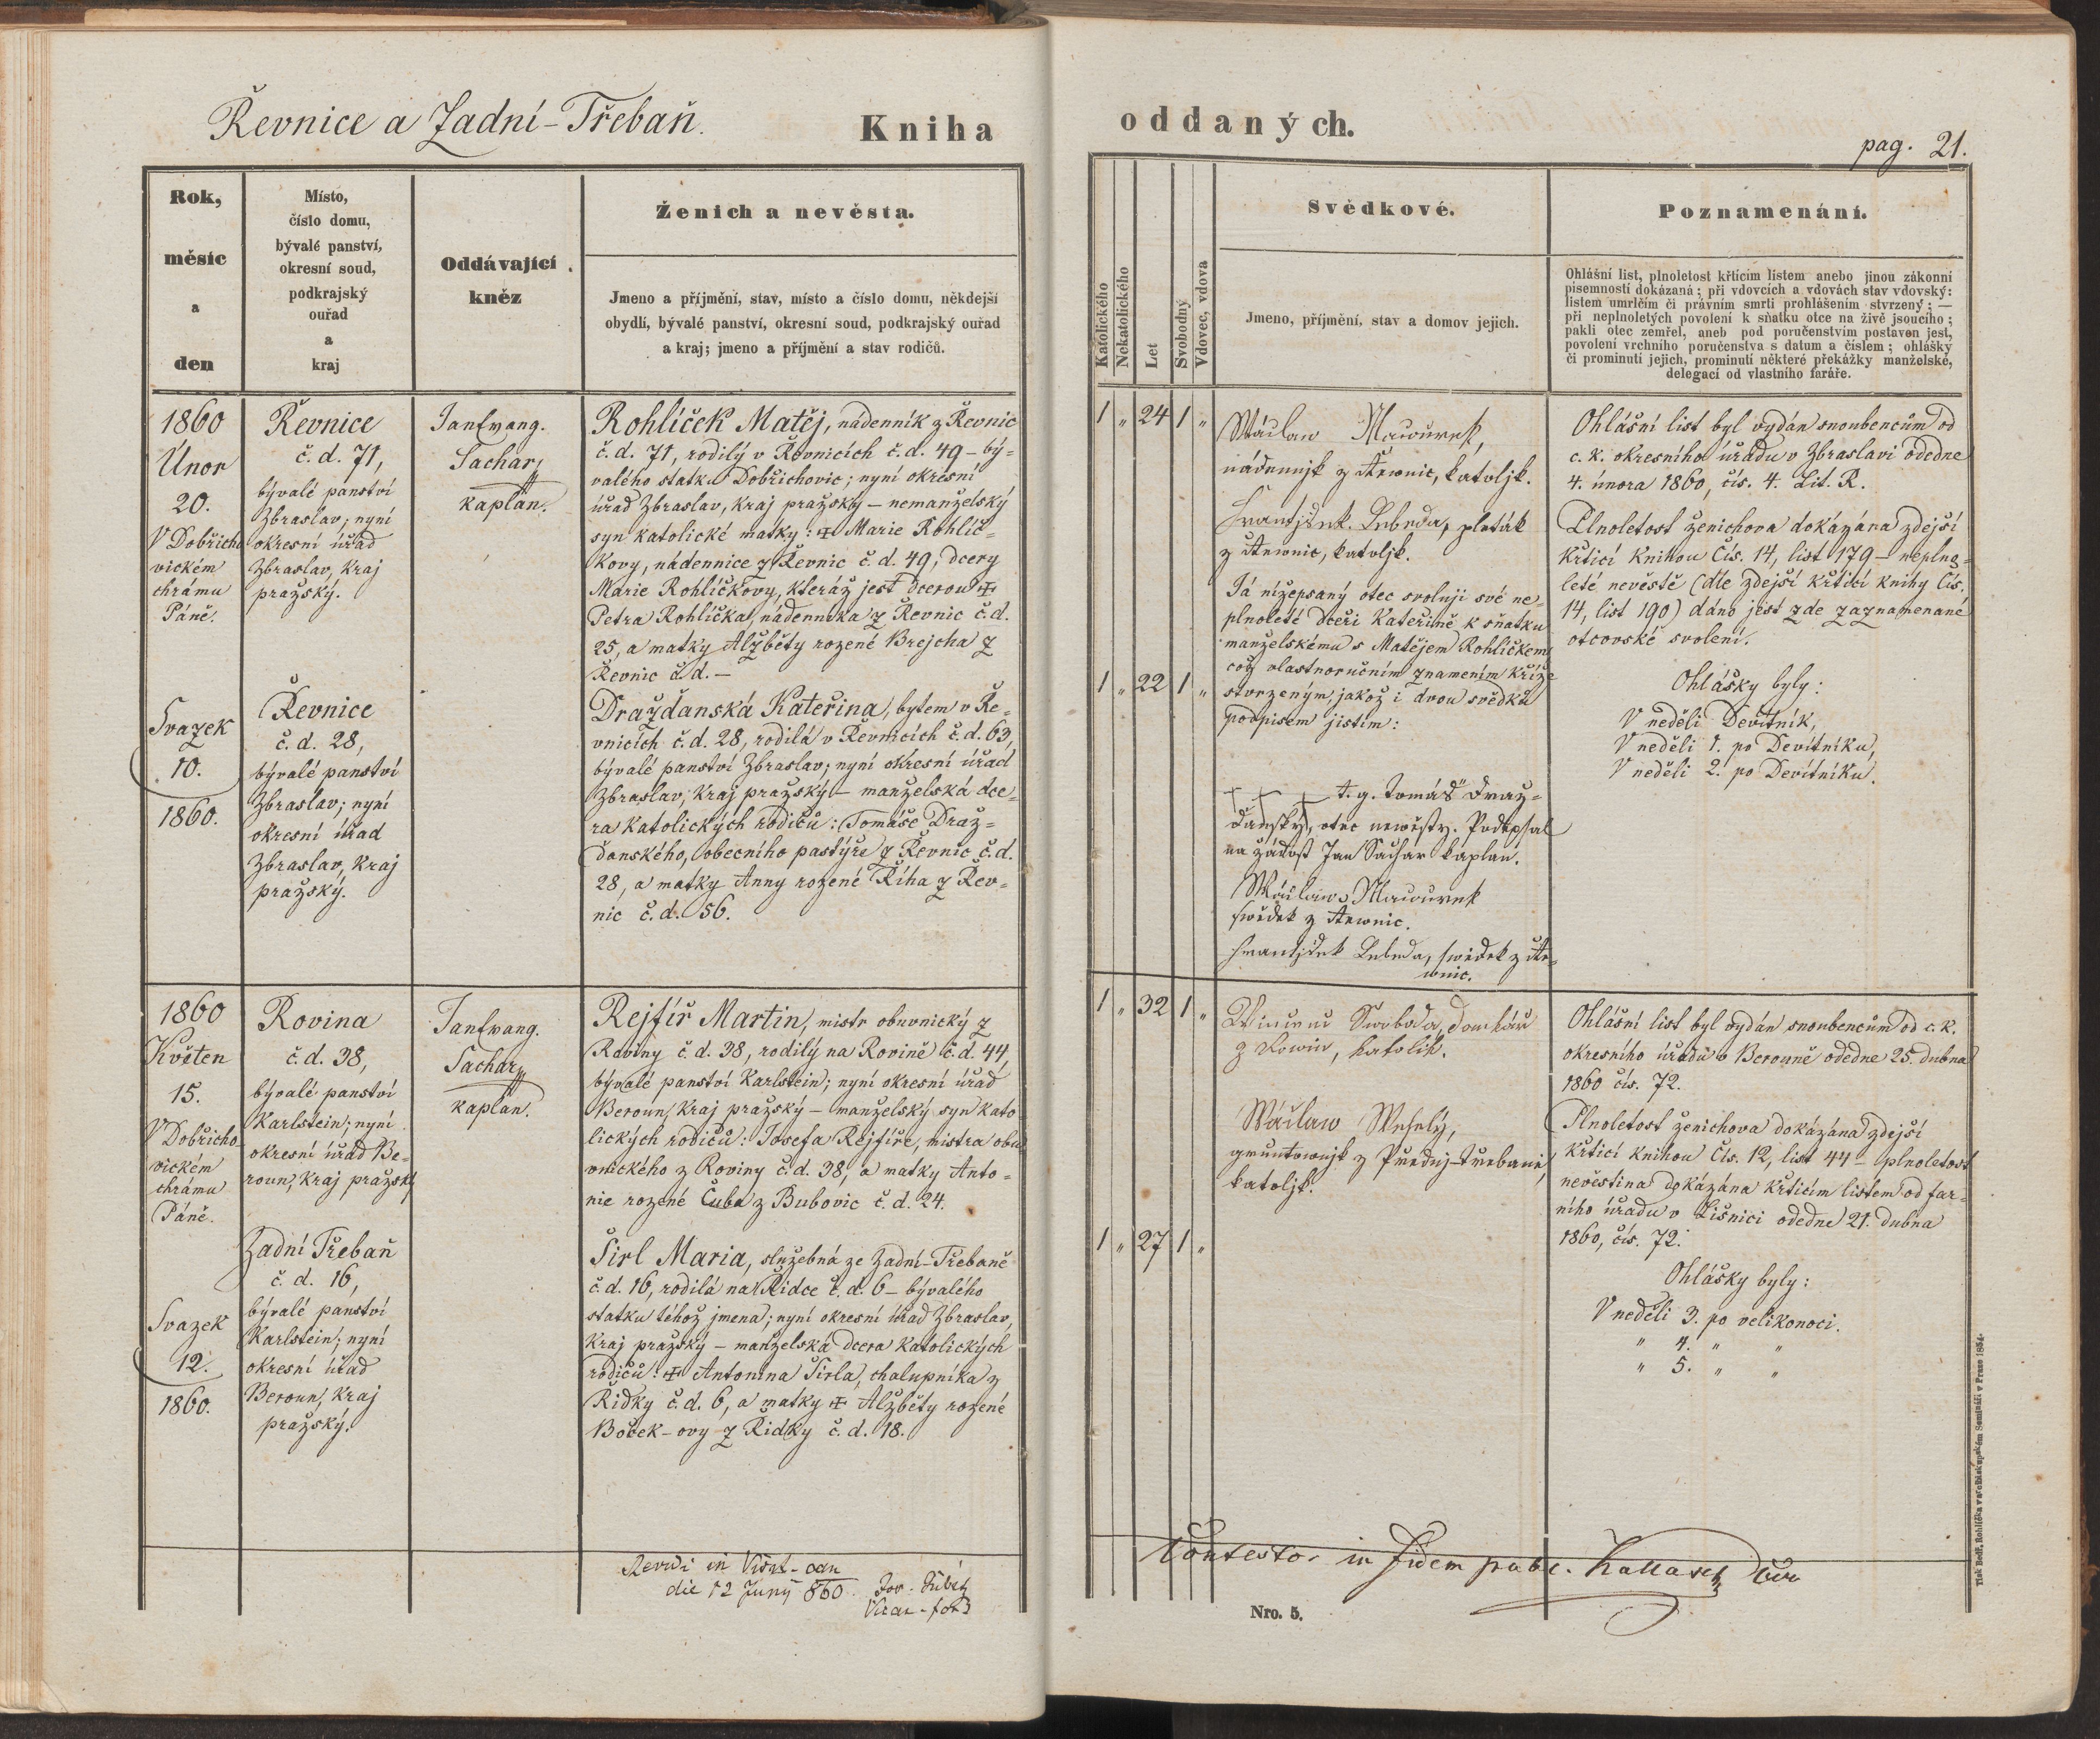 Řevnice a Zadní-Třebaň.
Kniha
oddaných.
pag. 21.
Rok,
měsíc
a
den
Místo,
číslo domu,
bývalé panství,
okresní soud,
podkrajský
ouřad
a
kraj
Oddávající
kněz
Ženich a nevěsta.
Jmeno a příjmění, stav, místo a číslo domu, někdejší
obydlí, bývalé panství, okresní soud, podkrajský ouřad
a kraj; jmeno a příjmění a stav rodičů.
Katolického
Nekatolického
Let
Svobodný
Vdovec, vdova
Svědkové.
Jmeno, příjmění, stav a domov jejich.
Poznamenání.
Ohlášní list, plnoletost křticím listem anebo jinou zákonní
písemností dokázaná; při vdovcích a vdovách stav vdovský:
listem umrlčím či právním smrti prohlášením stvrzený; —
při neplnoletých povolení k sňatku otce na živě jsoucího;
pakli otec zemřel, aneb pod poručenstvím postaven jest,
povolení vrchního poručenstva s datum a číslem; ohlášky
či prominutí jejich, prominutí některé překážky manželské,
delegací od vlastního faráře.
1860
Únor
20.
V Dobřicho
vickém
chrámu
Páně.
Svazek
10.
1860.
Řevnice
č. d. 71,
bývalé panství
Zbraslav; nyní
okresní úřad
Zbraslav, kraj
pražský.
Řevnice
č. d. 28,
bývalé panství
Zbraslav; nyní
okresní úřad
Zbraslav, kraj
pražský.
Sachar,
kaplan.
Rohlíček Matěj, nádenník z Řevnic
č. d. 71, rodilý v Řevnicích č. d. 49 – bý=
valého statku Dobřichovic; nyní okresní
úřad Zbraslav, kraj pražský – nemanželský
syn katolické matky: Marie Rohlíč=
kovy, nádennice z Řevnic č. d. 49, dcery
Marie Rohlíčkovy, kteráž jest dcerou
Petra Rohlíčka, nádenníka z Řevnic č. d.
25, a matky Alžběty rozené Brejcha z
Řevnic č. d. –
Draždanská Kateřina, bytem v Ře=
vnicích č. d. 28, rodilá v Řevnicích č. d. 63,
bývalé panství Zbraslav; nyní okresní úřad
Zbraslav, kraj pražský – manželská dce=
ra katolických rodičů: Tomáše Draž=
ďanského, obecního pastýře z Řevnic č. d.
28, a matky Anny rozené Říha z Řev=
nic č. d. 56.
1 „ 24 1 „
1 „ 22 1 „
Wáclaw Mawurek,
nádennjk z Řewnic, katoljk.
Frantjšek Lebeda,
z Řewnic, katoljk.
Já nížepsaný otec svoluji své ne=
plnoleté dceři Kateřině k sňatku
manželskému s Matějem Rohlíčkem
což vlastnoručním znamením kříže
stvrzeným, jakož i dvou svědků
podpisem jistím:
† † † t. g. Tomáš Draž=
ďanský, otec newěsty. Podepsal
na žádost Jan Sachar kaplan.
Wáclaw Mawurek
swědek z Řewnic.
Frantjšek Lebeda, swědek z Ře=
wnic.
Ohlášní list byl vydán snoubencům od
c. k. okresního úřadu v Zbraslavi odedne
4. února 1860, čís. 4. Lit. R.
Plnoletost ženichova dokázána zdejší
křticí knihou čís. 14, list 179 – neplno=
leté nevěstě (dle zdejší křticí knihy čís.
14, list 190) dáno jest zde zaznamenané
otcovské svolení.
Ohlášky byly:
V neděli Devítník,
V neděli 1. po Devítníku,
V neděli 2. po Devítníku.
1860
Květen
15.
V Dobřicho
vickém
chrámu
Páně.
Svazek
12.
1860.
Rovina
č. d. 38,
bývalé panství
Karlstein; nyní
okresní úřad Be=
roun, kraj pražský
Zadní Třebaň
č. d. 16,
bývalé panství
Karlstein; nyní
okresní úřad
Beroun, kraj
pražský.
Sachar,
kaplan.
Rejfíř Martin, mistr obuvnický z
Roviny č. d. 38, rodilý na Rovině č. d. 44,
bývalé panství Karlstein; nyní okresní úřad
Beroun, kraj pražský – manželský syn kato
lických rodičů: Josefa Rejfíře, mistra obu
vnického z Roviny č. d. 38, a matky Anto=
nie rozené Čuba z Bubovic č. d. 24.
Širl Maria, služebná ze Zadní-Třebaně
č. d. 16, rodilá na Řidce č. d. 6 – bývalého
statku téhož jmena; nyní okresní úřad Zbraslav,
kraj pražský – manželská dcera katolických
rodičů: Antonína Širla, chalupníka z
Řidky č. d. 6, a matky Alžběty rozené
Boček-ovy z Řidky č. d. 18.
1 „ 32 1 „
1 „ 27 1 „
Swoboda, domkář
z Rowin, katolik.
Wáclaw Weselý,
gruntownjk z Přednj-Třebaně,
katoljk.
Ohlášní list byl vydán snoubencům od c. k.
okresního úřadu v Berouně odedne 25. dubna
1860 čís. 72.
Plnoletost ženichova dokázána zdejší
křticí knihou čís. 12, list 44 – plnoletost
nevěstina dokázána křticím listem od far=
ního úřadu v Lišnici odedne 21. dubna
1860, čís. 72.
Ohlášky byly:
V neděli 3. po velikonoci.
„ 4. „ „
„ 5. „ „
die 12 Juny 860
in fidem
Nro. 5.
Tisk Bedř. Rohlíčka v arcibiskupském Semináři v Praze 1854.